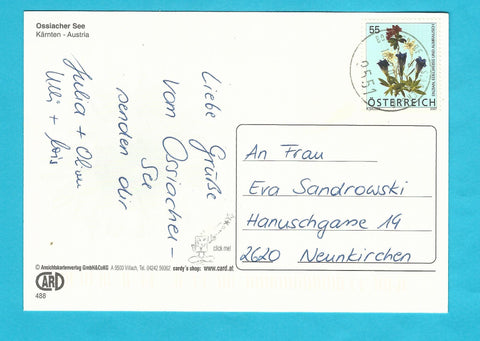 Ossiacher See
Kärnten - Austria
Liebe Grüße
vom Ossiacher-
See
senden dir
Julia +
Ulli +
55
ÖSTERREICH
An Frau
Eva Sandrowski
Hanuschgasse 19
2620 Neunkirchen
click me!
© Ansichtskartenverlag GmbH&CoKG A 9500 Villach, Tel. 04242 59362 cardy's shop: www.card.at
CARD
488